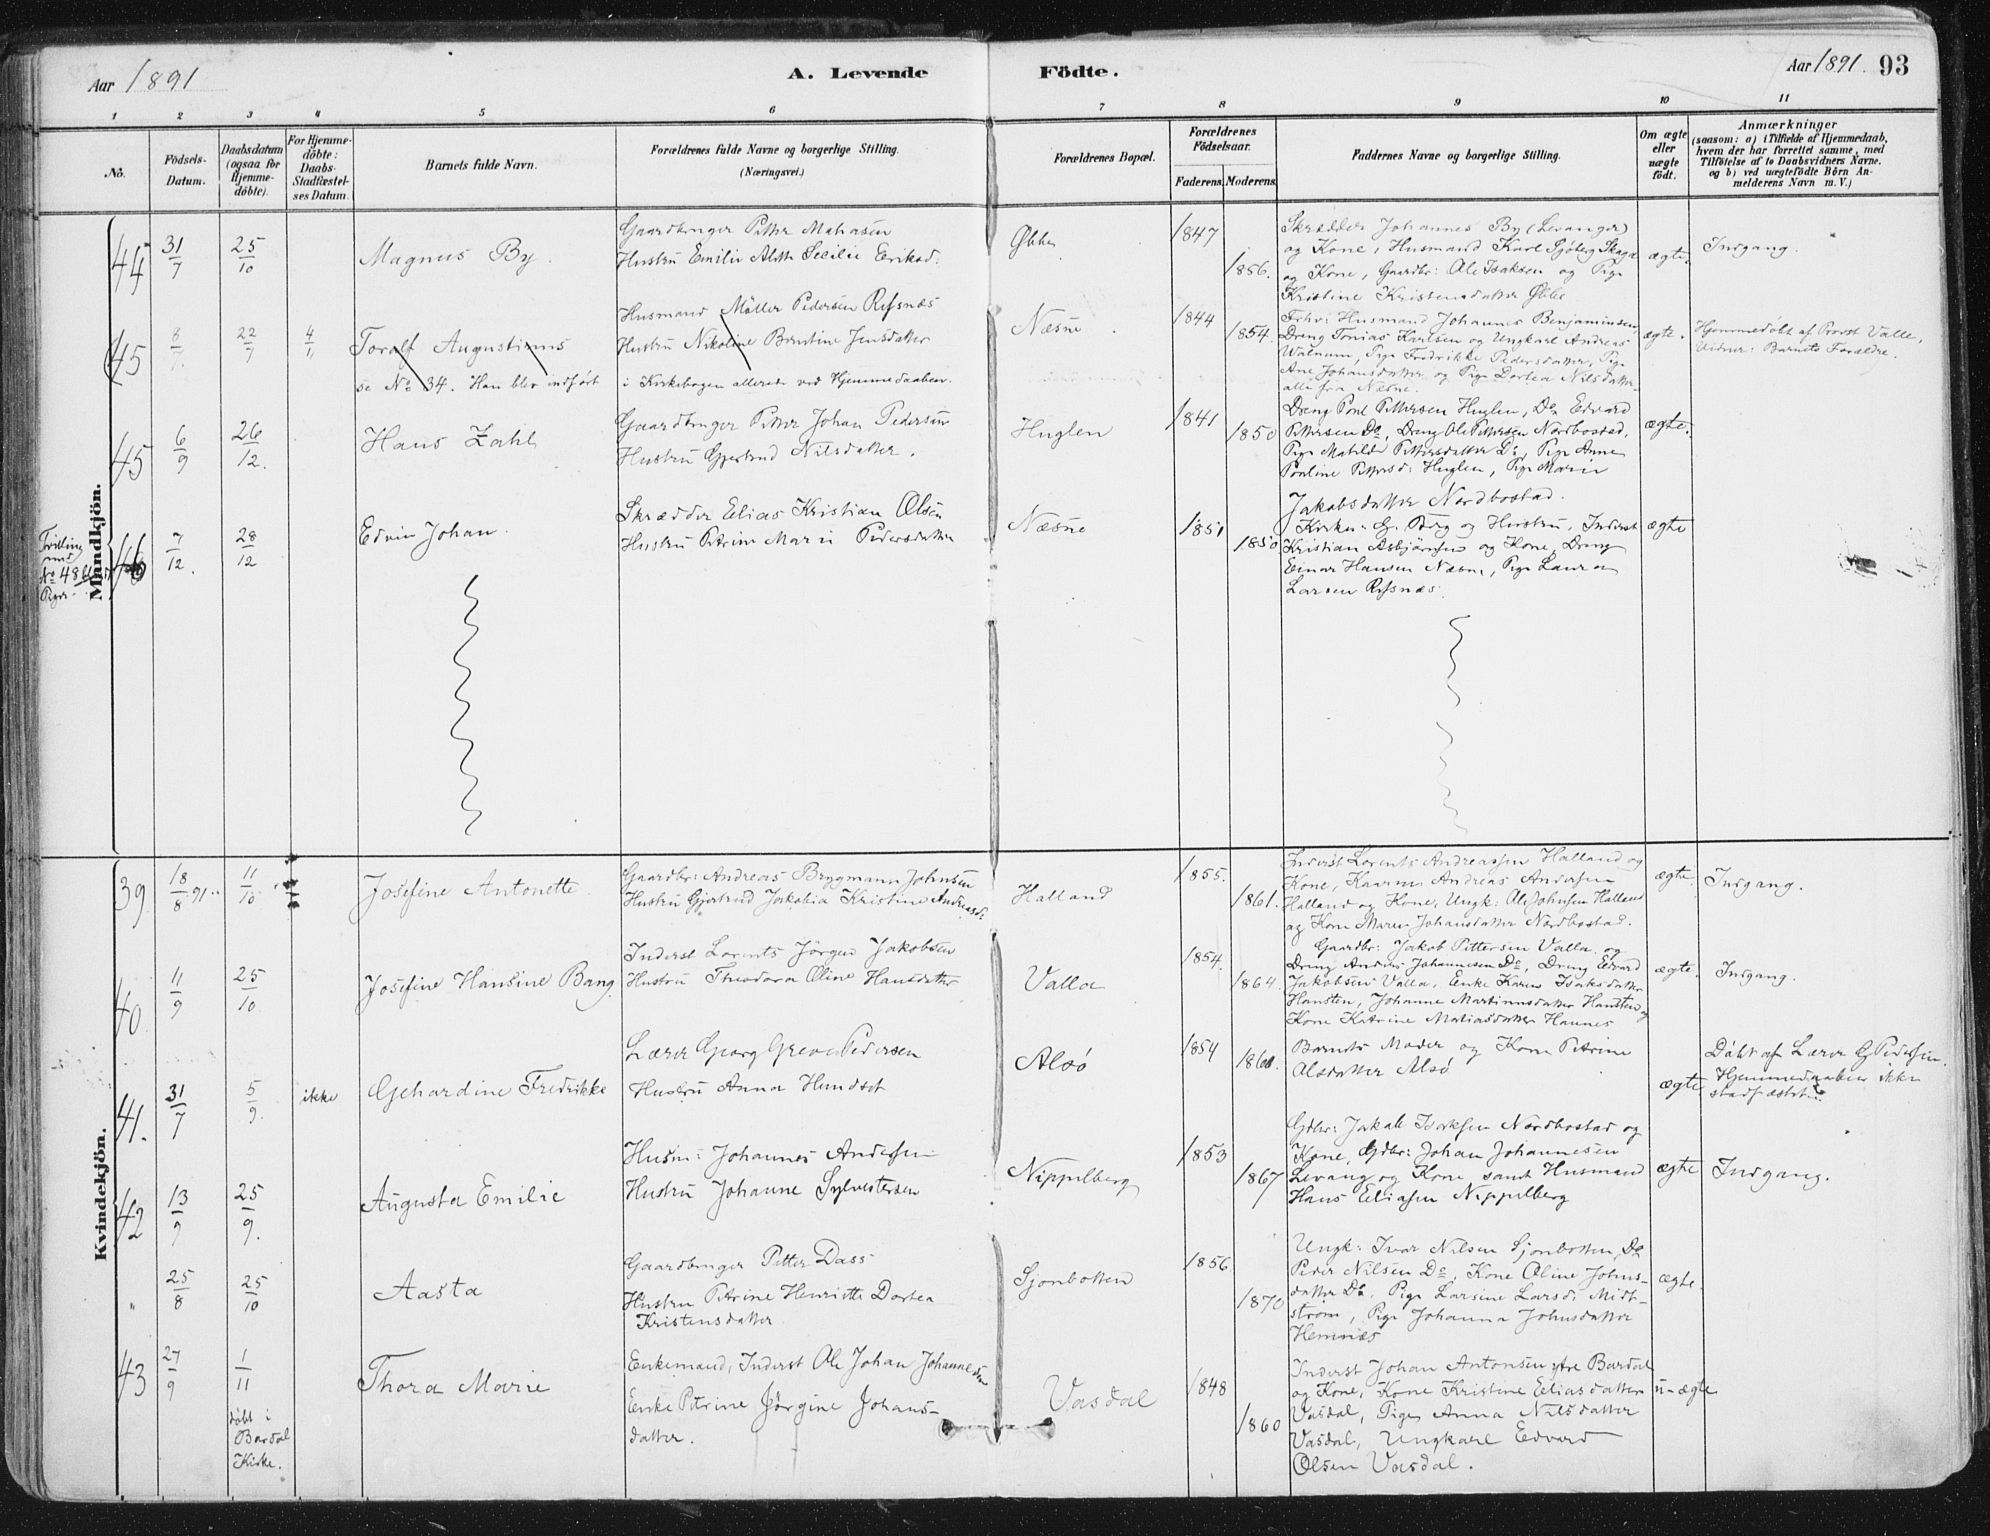 Aar 1891
A. Levende Födte.
Aar 1891. 93
1 2 3 4 5 6 7 8 9 10 11
No.
Födsels-Datum.
Daabsdatum (ogsaa for Hjemme-döbte).
For Hjemme-döbte: Daabs-Stadfæstel-ses Datum.
Barnets fulde Navn.
Forældrenes fulde Navne og borgerlige Stilling. (Næringsvei.)
Forældrenes Bopæl.
Forældrenes Födselsaar.
Faderens. Moderens.
Faddernes Navne og borgerlige Stilling.
Om ægte eller uægte födt.
Anmærkninger
(saasom: a) i Tilfælde af Hjemmedaab,
hvem der har forrettet samme, med
Tilföielse af to Daabsvidners Navne.
og b) ved uægtefödte Börn An-
melderens Navn m. V.)
Mandkjön.
44 31/7 25/10
Magnus By.
Gaardbruger Petter Mathisen
Hustru Emilie Secilie Eriksd:
Øbbe
1847
1856.
Skrædder Johannes By (Levanger)
og Kone, Husmand Karl Sjöberg
og Kone, Gaardbr: Ole Isaksen og Pige
Kristine Kristensdatter Øbbe
ægte.
Indgang.
45 22/7
Toralf Augustinus
se No 34. Han blev indført
Husmand Möller Pedersen Refsnæs
Hustru Nikoline Berntine Jensdatter
i Kirkebogen allerede ved Hjemmedaaben.
Næsne
1844
1854.
Fhv: Husmand Johannes Benjaminsen,
Dreng Tonias Karlsen og Ungkarl Andreas
Walnum, Pige Fredrikke Pedersdatter, Pige
Ane Johansdatter og Pige Dortea Nilsdatter
alle fra Næsne.
ægte.
Hjemmedøbt af Provst Valle,
Vidner: Barnets Forældre.
45 6/9 26/12.
Hans Zahl
Gaardbruger Petter Johan Pedersen
Hustru Gjertrud Nilsdatter.
Huglen
1841
1850
Dreng Poul Pettersen Huglen, Do Edvard
Pettersen Do, Dreng Ole Pettersen Nordbostad,
Pige Matilde Pettersdatter Do, Pige Anne
Pauline Pettersd: Huglen, Pige Marie
Jakobsdatter Nordbostad.
ægte.
Tvilling
med
No 48
Piger
46 7/12. 28/12
Edvin Johan.
Skrædder Elias Kristian Olsen
Hustru Petrine Marie Pedersdatter
Næsne
1851
1850
G. Berg og Hustru, Inderst
Kristian Asbjörnsen og Kone, Dreng
Einar Hansen Næsne, Pige Laura
Larsen Refsnæs.
ægte
Kvindekjön.
39 18/8 91. 11/10
Josefine Antonette.
Gaardbr: Andreas Brygmann Johnsen
Hustru Gjertrud Jakobia Kristine Andreasd:
Halland
1855.
1861.
Inderst Lorents Andreassen Halland og
Kone, Andreas Andersen
Halland og Kone, Ungk: Ole Johnsen Halland
og Kone Maren Johansdatter Nordbostad.
ægte.
Indgang.
40 11/9 25/10
Josefine Hansine Bang
Inderst Lorents Jörgen Jakobsen
Hustru Theodora Oline Hansdatter
Valla
1854.
1864.
Gaardbr: Jakob Pettersen Valla og
Dreng Anders Johannesen Do, Dreng Edvard
Jakobsen Valla, Enke Karen Isaksdatter
Hansten, Johanne Martinusdatter Hansten og
Kone Katrine Matiasdatter Hannes
ægte.
Indgang.
41. 31/7 5/9. ikke
Gehardine Fredrikke
Lærer Georg Greve Pedersen
Hustru Anna Hundset
Alsö
1854
Barnets Moder og Kone Petrine
Olsdatter Alsö
ægte
Döbt af Lærer G Pedersen.
Hjemmedaaben ikke
stadfæstet
42 13/9 25/9.
Augusta Emilie
Husm: Johannes Andersen
Hustru Johanne Sylvestersen
Nippelberg
1853
1867
Gdbr: Jakob Isaksen Nordbostad og
Kone, Gdbr: Johan Johannesen
Levang og Kone samt Husmand
Hans Eliasen Nippelberg
ægte
Indgang.
" 25/8 25/10
Aasta
Gaardbruger Petter Dass
Hustru Petrine Henriette Dortea
Kristensdatter.
Sjonbotten
1856
1870
Ungk: Ivar Nilsen Sjonbotten, Do
Peder Nilsen Do, Kone Oline Johns-
datter Do. Pige Larsine Larsd: Midt-
ström, Pige Johanna Johnsdatter
Hemnæs
ægte.
43 27/9 1/11
döbt i
Bardal
Kirke.
Thora Marie
Enkemand, Inderst Ole Johan Johannesen
Enke Petrine Jörgine Johans-
datter.
Vasdal
1848
1860
Inderst Johan Antonsen ytre Bardal
og Kone, Kone Kristine Eliasdatter
Vasdal, Pige Anna Nilsdatter
Vasdal, Ungkarl Edvard
Olsen Vasdal.
u-ægte